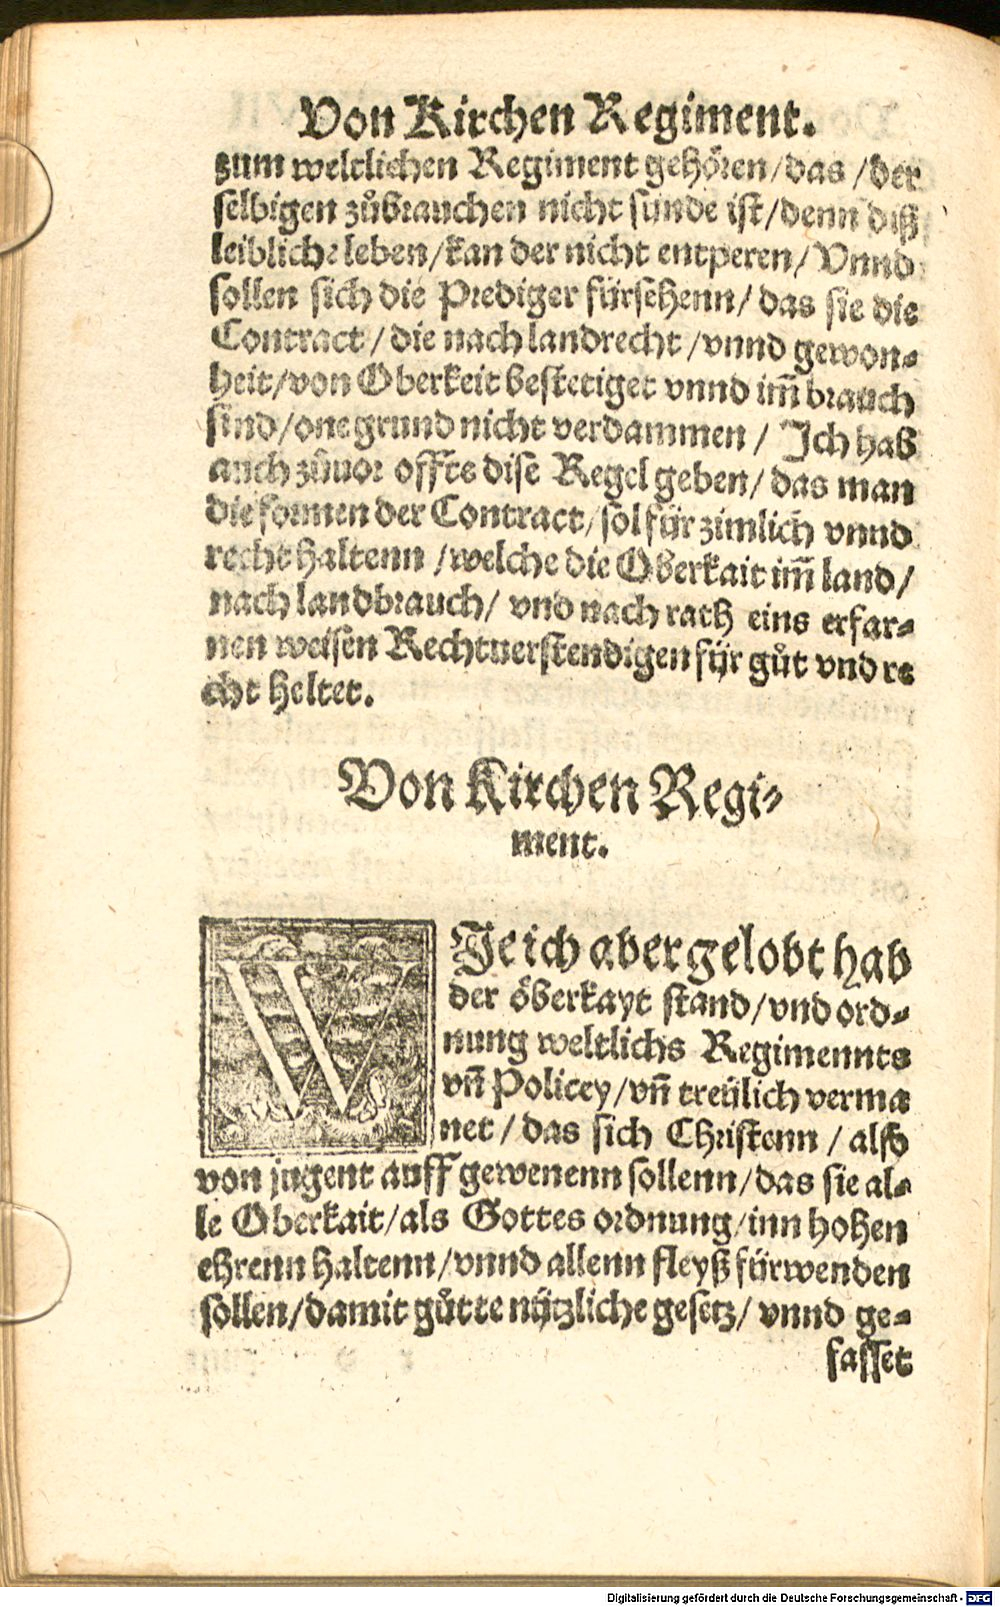 Von Kirchen Regiment.
zum weltlichen Regiment gehören/das/der
selbigen zůbrauchen nicht sünde ist/denn diß
leibliche leben/kan der nicht entperen/Vnnd
sollen sich die Prediger fürsehenn/das sie die
Contract/die nach landrecht/vnnd gewon⸗
heit/von Oberkeit bestetiget vnnd im̃ brauch
sind/one grund nicht verdammen/Ich hab
auch zůuor offts dise Regel geben/das man
die formen der Contract/sol für zimlich vnnd
recht haltenn/welche die Oberkait im̃ land/
nach landbrauch/vnd nach rath eins erfar⸗
nen weisen Rechtuerstendigen für gůt vnd re
cht heltet.
Von Kirchen Regi⸗
ment.
WIe ich aber gelobt hab
der öberkayt stand/vnd ord⸗
nung weltlichs Regimennts
vñ Policey/vñ treülich verma
net/das sich Christenn/also
von jugent auff gewenenn sollenn/das sie al⸗
le Oberkait/als Gottes ordnung/inn hohen
ehrenn haltenn/vnnd allenn fleyß fürwenden
sollen/damit gůtte nützliche gesetz/vnnd ge⸗
fasset
Digitalisierung gefördert durch die Deutsche Forschungsgemeinschaft - DFG